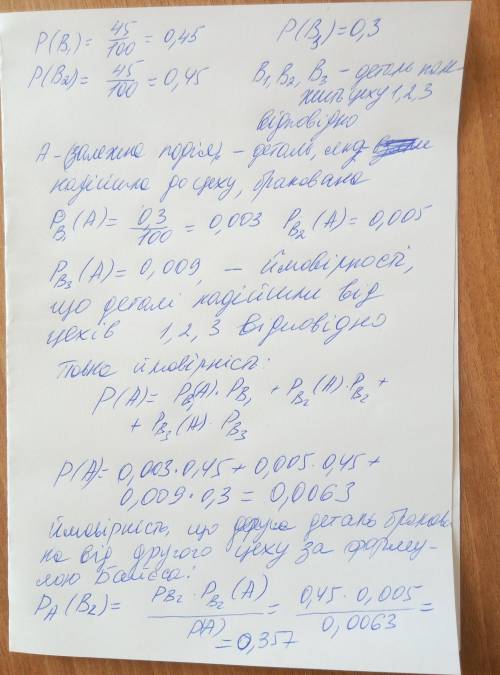 P(B₁) = 45/100 = 0,45 P(B₃) = 0,3
P(B₂) = 45/100 = 0,45 B₁, B₂, B₃ – деталь нале-
жить цеху 1, 2, 3
відповідно
A – (залежна подія) – деталь, яка
надійшла до цеху, бракована
P_B₁(A) = 0,3/100 = 0,003 P_B₂(A) = 0,005
P_B₃(A) = 0,009, – ймовірності,
що деталі надійшли від
цехів 1, 2, 3 відповідно
Повна ймовірність:
P(A) = P_B₁(A) · P_B₁ + P_B₂(A) · P_B₂ +
+ P_B₃(A) · P_B₃
P(A) = 0,003 · 0,45 + 0,005 · 0,45 +
0,009 · 0,3 = 0,0063
Ймовірність, що друга деталь бракова-
на від другого цеху за форму-
лою Байєса:
P_A(B₂) = P_B₂ · P_B₂(A) / P(A) = 0,45 · 0,005 / 0,0063 =
= 0,357